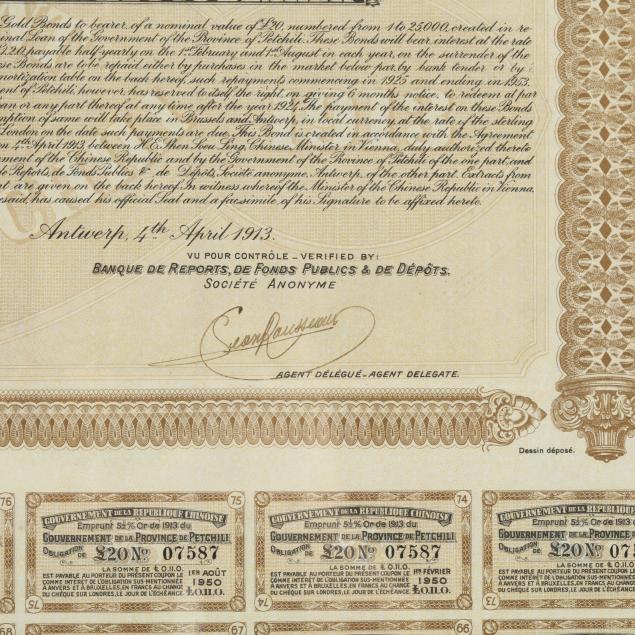 Gold Bonds to bearer, of a nominal value of £20, numbered from 1 to 25,000, created in re-
inal Loan of the Government of the Province of Petchili. These Bonds will bear interest at the rate
£20, payable half-yearly on the 1st February and 1st August in each year, on the surrender of the
se Bonds are to be repaid either by purchases in the market below par, by bank tender or by
mortization table on the back hereof, such repayments commencing in 1925 and ending in 1953.
ent of Petchili, however, has reserved to itself the right, on giving 6 months notice, to redeem at par
an or any part thereof at any time after the year 1921. The payment of the interest on these Bonds
mption of same will take place in Brussels and Antwerp, in local currency, at the rate of the sterling
London on the date such payments are due. This Bond is created in accordance with the Agreement
4th April 1913, between H.E. Shen Soeu Ling, Chinese Minister in Vienna, duly authorized thereto
ment of the Chinese Republic and by the Government of the Province of Petchili of the one part, and
de Reports, de Fonds Publics & de Dépôts, Société anonyme, Antwerp, of the other part. Extracts from
nt are given on the back hereof. In witness whereof the Minister of the Chinese Republic in Vienna,
esaid, has caused his official Seal and a facsimile of his Signature to be affixed hereto.
Antwerp, 4th April 1913.
VU POUR CONTRÔLE - VERIFIED BY:
BANQUE DE REPORTS, DE FONDS PUBLICS & DE DÉPÔTS.
SOCIÉTÉ ANONYME
AGENT DÉLÉGUÉ - AGENT DELEGATE.
Dessin déposé.
76 75 74
GOUVERNEMENT DE LA REPUBLIQUE CHINOISE
Emprunt 5½% Or de 1913 du
GOUVERNEMENT DE LA PROVINCE DE PETCHILI
OBLIGATION DE £20 No 07587
LA SOMME DE £ 0.11.0.
EST PAYABLE AU PORTEUR DU PRÉSENT COUPON LE
COMME INTÉRÊT DE L'OBLIGATION SUS-MENTIONNÉE
A ANVERS ET A BRUXELLES, EN FRANCS AU CHANGE
DU CHÈQUE SUR LONDRES, LE JOUR DE L'ÉCHÉANCE
1ER AOÛT
1950
£0.11.0.
75
GOUVERNEMENT DE LA REPUBLIQUE CHINOISE
Emprunt 5½% Or de 1913 du
GOUVERNEMENT DE LA PROVINCE DE PETCHILI
OBLIGATION DE £20 No 07587
LA SOMME DE £ 0.11.0.
EST PAYABLE AU PORTEUR DU PRÉSENT COUPON LE
COMME INTÉRÊT DE L'OBLIGATION SUS-MENTIONNÉE
A ANVERS ET A BRUXELLES, EN FRANCS AU CHANGE
DU CHÈQUE SUR LONDRES, LE JOUR DE L'ÉCHÉANCE
1ER FÉVRIER
1950
£0.11.0.
74
GOUVERNEMENT DE LA REPUBLI
Emprunt 5½% Or de 1913
GOUVERNEMENT DE LA PROVINCE
OBLIGATION DE £20 No 07
LA SOMME DE £ 0.11.0.
EST PAYABLE AU PORTEUR DU PRÉSENT COUPON
COMME INTÉRÊT DE L'OBLIGATION SUS-MENTION
A ANVERS ET A BRUXELLES, EN FRANCS AU CH
DU CHÈQUE SUR LONDRES, LE JOUR DE L'ÉCHÉ
73
68 67 66